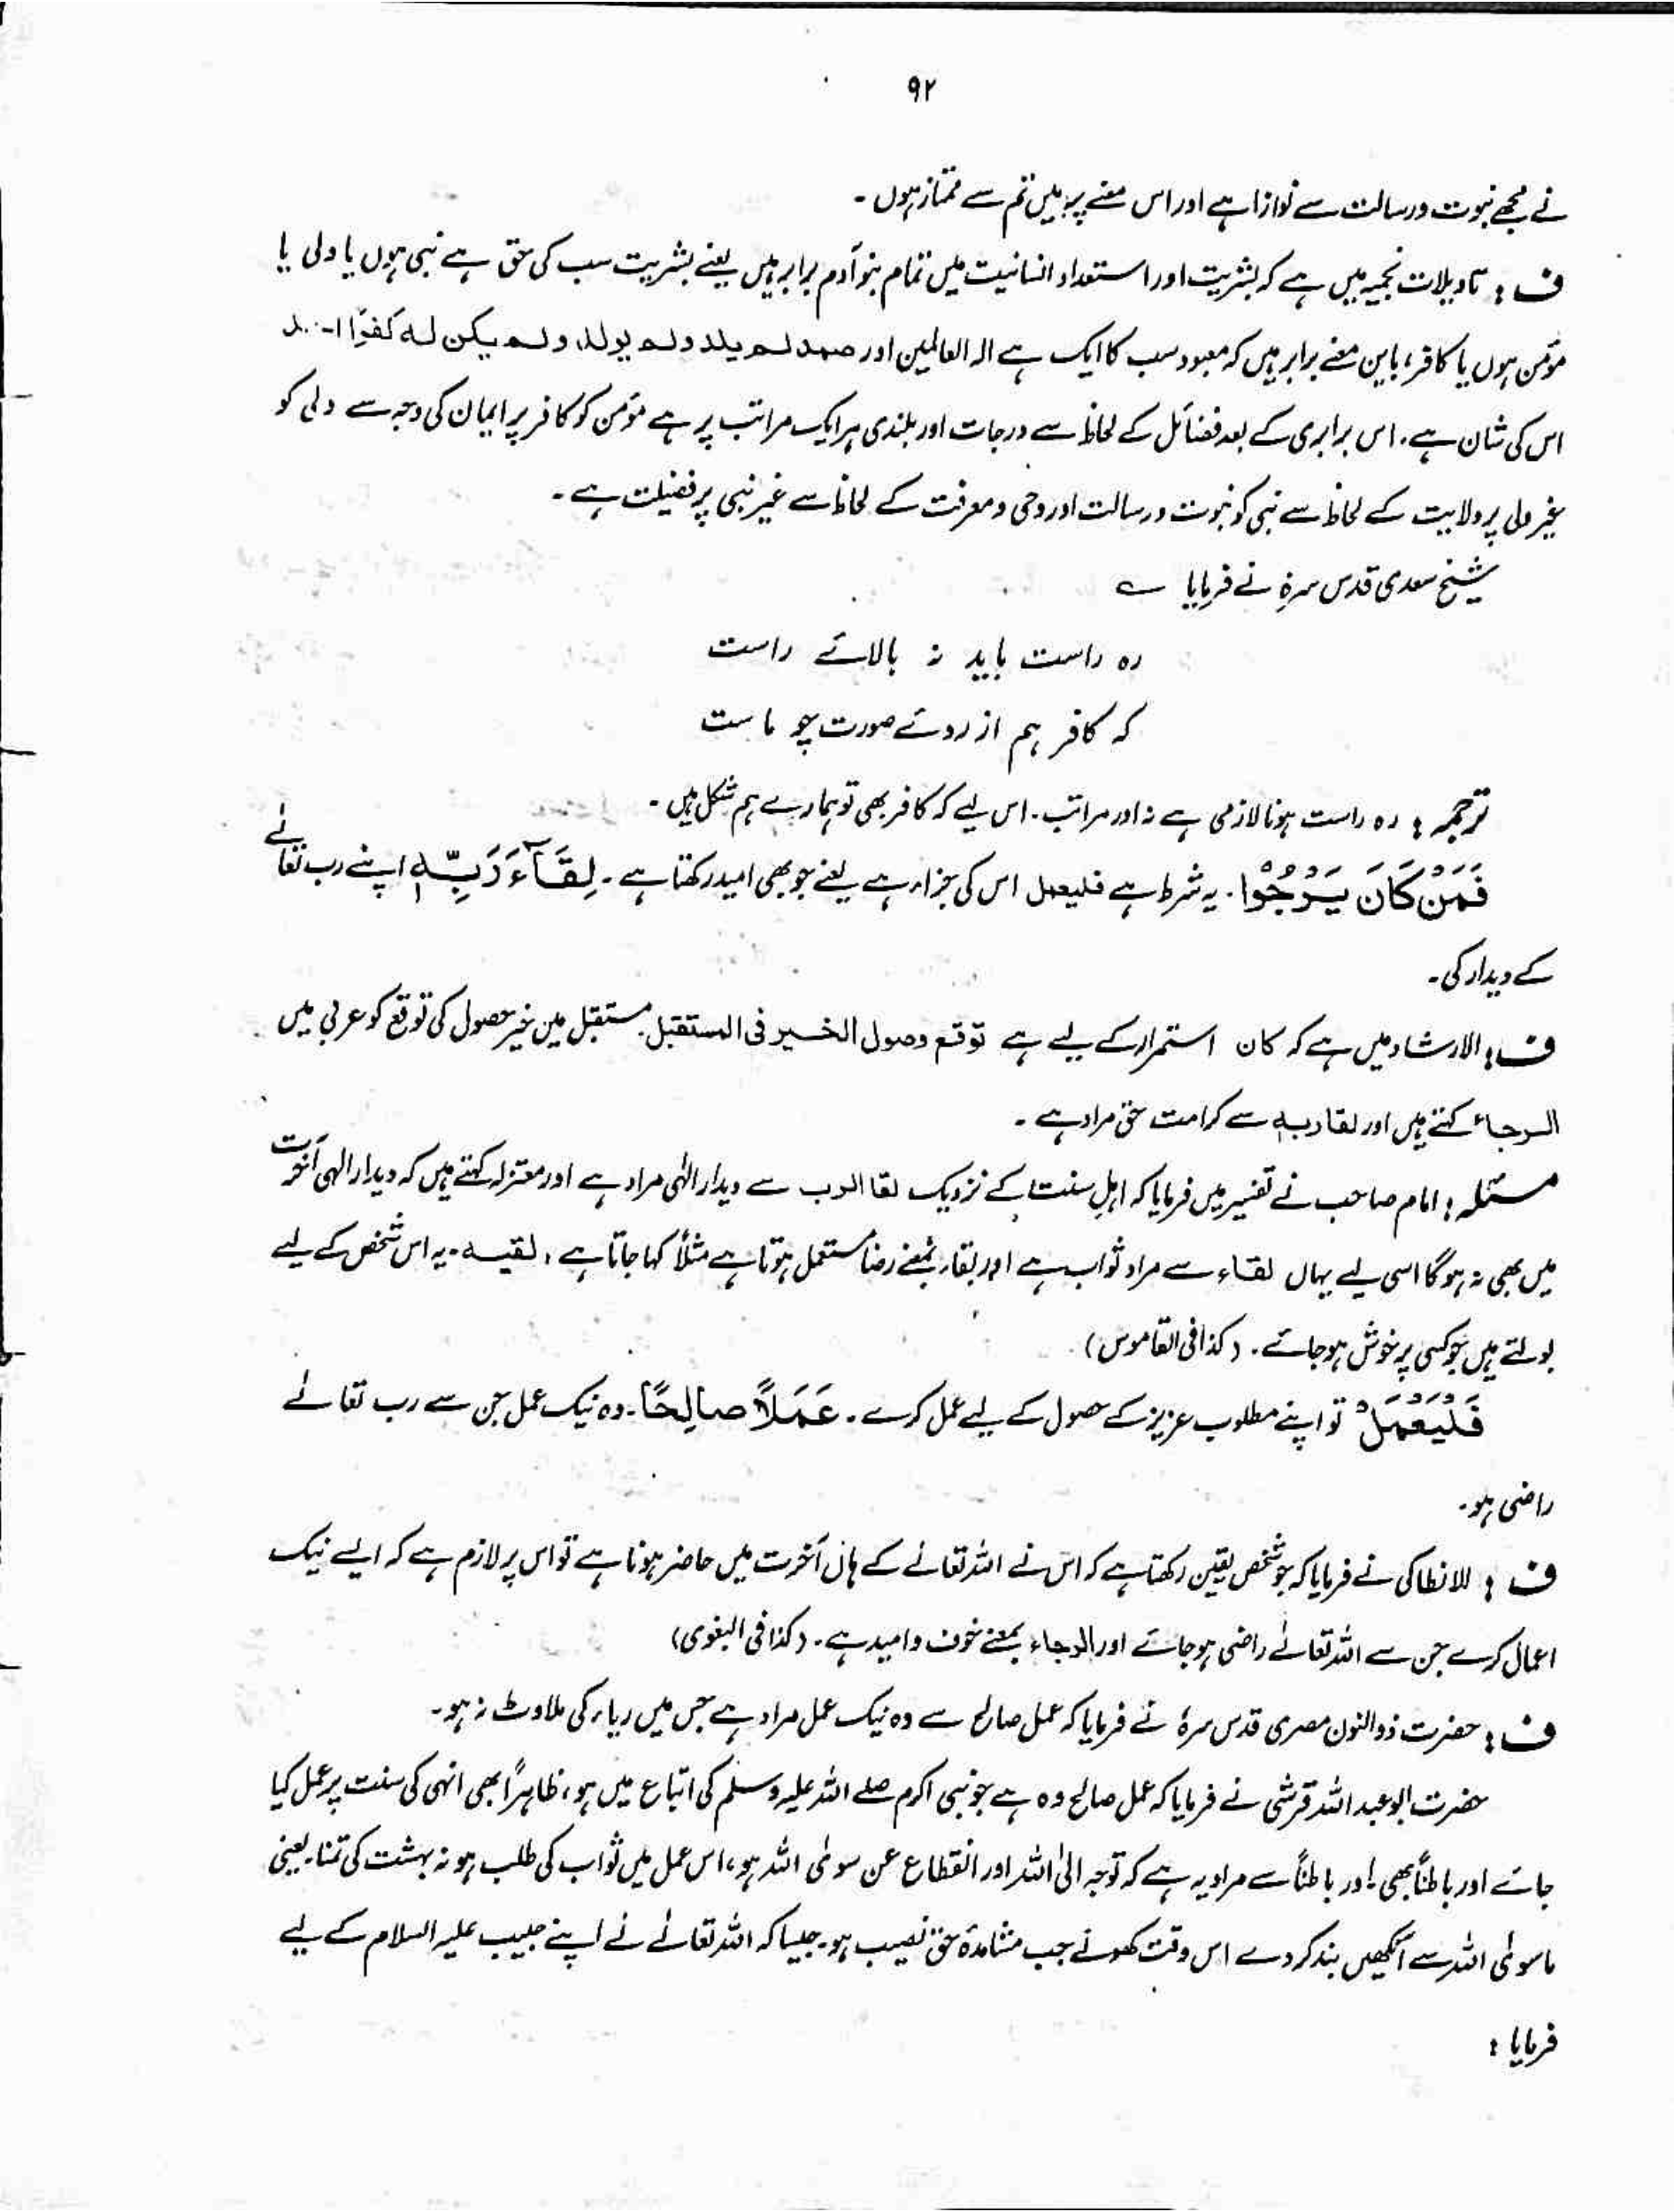 ۹۲
نے مجھے نبوت ورسالت سے نوازا ہے اور اس معنے پر میں تم سے ممتاز ہوں ۔
ف : تاویلات نجمیہ میں ہے کہ بشریت اور استعداد انسانیت میں تمام بنو آدم برابر ہیں یعنے بشریت سب کی حق ہے نبی ہوں یا ولی یا
مؤمن ہوں یا کافر ، باین معنے برابر ہیں کہ معبود سب کا ایک ہے الہ العالمین اور صمد لم یلد ولم یولد ولم یکن لہ کفوًا احد
اس کی شان ہے ۔ اس برابری کے بعد فضائل کے لحاظ سے درجات اور بلندی ہر ایک مراتب پر ہے مؤمن کو کافر پر ایمان کی وجہ سے ولی کو
غیر ولی پر ولایت کے لحاظ سے نبی کو نبوت ورسالت اور وحی ومعرفت کے لحاظ سے غیر نبی پر فضیلت ہے ۔
شیخ سعدی قدس سرہ نے فرمایا ؎
رہ راست باید نہ بالائے راست
کہ کافر ہم از روئے صورت چو ماست
ترجمہ : رہ راست ہونا لازمی ہے نہ اور مراتب ۔ اس لیے کہ کافر بھی تو ہمارے ہم شکل ہیں ۔
فَمَنْ كَانَ يَرْجُوْا ۔ یہ شرط ہے فلیعمل اس کی جزاء ہے یعنے جو بھی امید رکھتا ہے ۔ لِقَآءَ رَبِّهٖ اپنے رب تعالٰے
کے دیدار کی ۔
ف : الارشاد میں ہے کہ کان استمرار کے لیے ہے توقع وصول الخیر فی المستقبل ۔ مستقبل میں خیر حصول کی توقع کو عربی میں
الرجاء کہتے ہیں اور لقا ربہٖ سے کرامت حق مراد ہے ۔
مسئلہ : امام صاحب نے تفسیر میں فرمایا کہ اہل سنت کے نزدیک لقا الرب سے دیدار الٰہی مراد ہے اور معتزلہ کہتے ہیں کہ دیدار الٰہی آخرت
میں بھی نہ ہوگا اسی لیے یہاں لقاء سے مراد ثواب ہے اور بقاء بمعنے رضا مستعمل ہوتا ہے مثلاً کہا جاتا ہے ، لقیہ ۔ یہ اس شخص کے لیے
بولتے ہیں جو کسی پر خوش ہو جائے ۔ (کذا فی القاموس)
فَلْيَعْمَلْ تو اپنے مطلوب عزیز کے حصول کے لیے عمل کرے ۔ عَمَلًا صَالِحًا ۔ وہ نیک عمل جن سے رب تعالٰے
راضی ہو ۔
ف : للانطاکی نے فرمایا کہ جو شخص یقین رکھتا ہے کہ اس نے اللہ تعالٰے کے ہاں آخرت میں حاضر ہونا ہے تو اس پر لازم ہے کہ ایسے نیک
اعمال کرے جن سے اللہ تعالٰے راضی ہو جائے اور الرجاء بمعنے خوف و امید ہے ۔ (کذا فی البغوی)
ف : حضرت ذوالنون مصری قدس سرہٗ نے فرمایا کہ عمل صالح سے وہ نیک عمل مراد ہے جس میں ریاء کی ملاوٹ نہ ہو ۔
حضرت ابو عبد اللہ قرشی نے فرمایا کہ عمل صالح وہ ہے جو نبی اکرم صلے اللہ علیہ وسلم کی اتباع میں ہو ، ظاہراً بھی انہی کی سنت پر عمل کیا
جائے اور باطناً بھی ۔ اور باطناً سے مراد یہ ہے کہ توجہ الیٰ اللہ اور انقطاع عن سوٰی اللہ ہو ، اس عمل میں ثواب کی طلب ہو نہ بہشت کی تمنا ۔ یعنی
ماسوٰی اللہ سے آنکھیں بند کردے اس وقت کھولے جب مشاہدۂ حق نصیب ہو ۔ جیسا کہ اللہ تعالٰے نے اپنے حبیب علیہ السلام کے لیے
فرمایا :